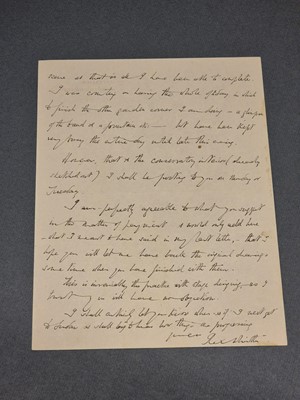 scene so that is all I have been able to complete.
I was counting on having the whole of today in which
to finish the other garden scene I am doing - a glimpse
of the band & a fountain &c — but have been kept
very busy the entire day until late this evening.
However, that & the conservatory interior (already
sketched out) I shall be posting to you on Monday or
Tuesday.
I am perfectly agreeable to what you suggest
in the matter of payment & would only add here
what I meant to have said in my last letter, that I
hope you will let me have back the original drawings
some time when you have finished with them.
This is invariably the practice with stage designs, so I
trust you will have no objection.
I shall certainly let you know when & if I next get
to London & shall beg to know how things are progressing
yours